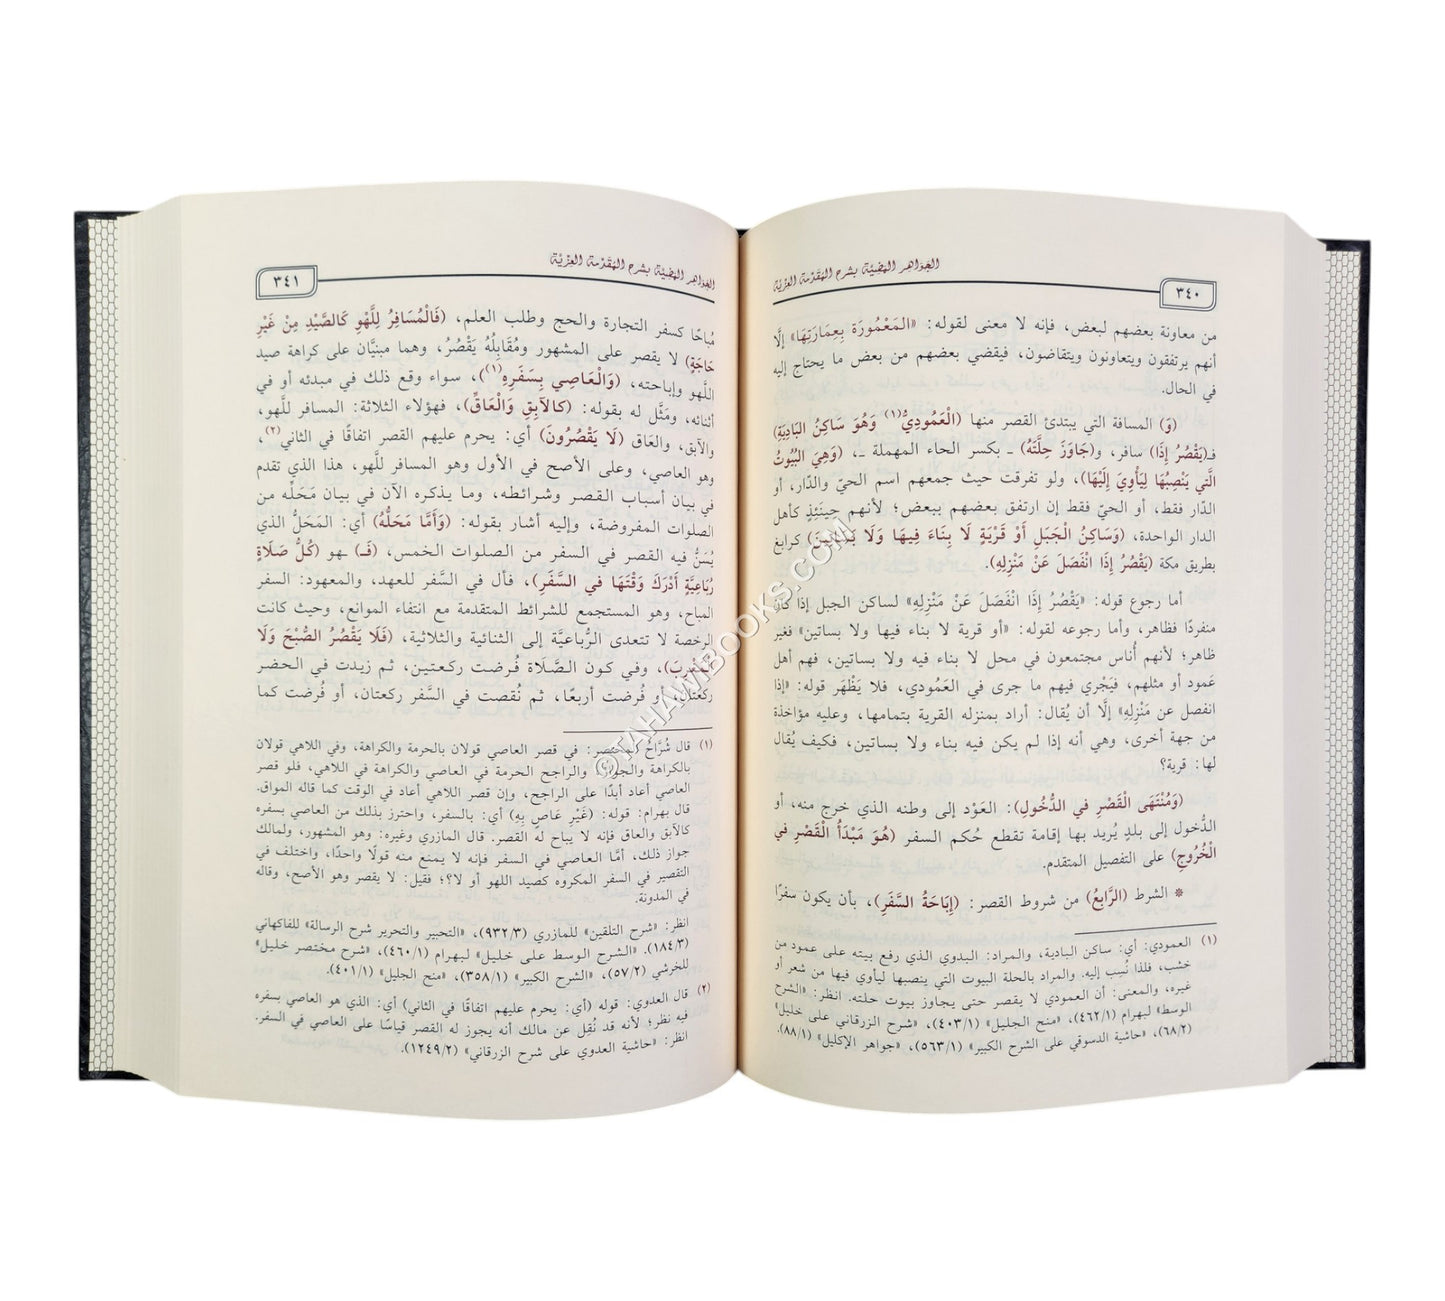 ٣٤٠
الجواهر المضية بشرح المقدمة العزية
من معاونة بعضهم لبعض، فإنه لا معنى لقوله: «المَعْمُورَة بِعِمَارَتِهَا» إلَّا
أنهم يرتفقون ويتعاونون ويتقاضون، فيقضي بعضهم من بعض ما يحتاج إليه
في الحال.
(وَ) المسافة التي يبتدئ القصر منها (الْعَمُودِيُّ(١) وَهُوَ سَاكِنُ البَادِيَةِ)
فـ(يَقْصُرُ إِذَا) سافر، و(جَاوَزَ حِلَّتَهُ) ـ بكسر الحاء المهملة ـ، (وَهِيَ البُيُوتُ
الَّتِي يَنْصِبُهَا لِيَأْوِيَ إِلَيْهَا)، ولو تفرقت حيث جمعهم اسم الحيّ والدَّار، أو
الدَّار فقط، أو الحيّ فقط إن ارتفق بعضهم ببعض؛ لأنهم حِينَئِذٍ كأهل
الدار الواحدة، (وَسَاكِنُ الْجَبَلِ أَوْ قَرْيَةٍ لَا بِنَاءَ فِيهَا وَلَا بَسَاتِينَ) كرابغ
بطريق مكة (يَقْصُرُ إِذَا انْفَصَلَ عَنْ مَنْزِلِهِ).
أما رجوع قوله: «يَقْصُرُ إِذَا انْفَصَلَ عَنْ مَنْزِلِهِ» لساكن الجبل إذا كان
منفردًا فظاهر، وأما رجوعه لقوله: «أو قرية لا بناء فيها ولا بساتين» فغير
ظاهر؛ لأنهم أُناس مجتمعون في محل لا بناء فيه ولا بساتين، فهم أهل
عَمود أو مثلهم، فيَجْري فيهم ما جرى في العَمُودي، فلا يَظْهَر قوله: «إذا
انفصل عن مَنْزِلِهِ» إلَّا أن يُقال: أراد بمنزله القرية بتمامها، وعليه مؤاخذة
من جهة أخرى، وهي أنه إذا لم يكن فيه بناء ولا بساتين، فكيف يُقال
لها: قرية؟
(وَمُنْتَهَى الْقَصْرِ في الدُّخُولِ): العَوْد إلى وطنه الذي خرج منه، أو
الدُّخول إلى بلدٍ يُريد بها إقامة تقطع حُكم السفر (هُوَ مَبْدَأُ الْقَصْرِ في
الْخُرُوجِ) على التفصيل المتقدم.
* الشرط (الرَّابِعُ) من شروط القصر: (إِبَاحَةُ السَّفَرِ)، بأن يكون سفرًا
(١) العمودي: أي: ساكن البادية، والمراد: البدوي الذي رفع بيته على عمود من
خشب، فلذا نُسِب إليه. والمراد بالحلة البيوت التي ينصبها ليأوي فيها من شعر أو
غيره، والمعنى: أن العمودي لا يقصر حتى يجاوز بيوت حلته. انظر: «الشرح
الوسط» لبهرام (٤٦٢/١)، «منح الجليل» (٤٠٣/١)، «شرح الزرقاني على خليل»
(٦٨/٢)، «حاشية الدسوقي على الشرح الكبير» (٥٦٣/١)، «جواهر الإكليل» (٨٨/١).
الجواهر المضية بشرح المقدمة العزية
٣٤١
مُباحًا كسفر التجارة والحج وطلب العلم، (فَالْمُسَافِرُ لِلَّهْوِ كَالصَّيْدِ مِنْ غَيْرِ
حَاجَةٍ) لا يقصر على المشهور ومُقَابِلُهُ يَقْصُرُ، وهما مبنيَّان على كراهة صيد
اللَّهو وإباحته، (وَالْعَاصِي بِسَفَرِهِ(١))، سواء وقع ذلك في مبدئه أو في
أثنائه، ومَثَّل له بقوله: (كالآبِقِ وَالْعَاقِّ)، فهؤلاء الثلاثة: المسافر للَّهو،
والآبق، والعَاق (لَا يَقْصُرُونَ) أي: يحرم عليهم القصر اتفاقًا في الثاني(٢)،
وهو العاصي، وعلى الأصح في الأول وهو المسافر للَّهو، هذا الذي تقدم
في بيان أسباب القصر وشرائطه، وما يذكره الآن في بيان مَحَلِّه من
الصلوات المفروضة، وإليه أشار بقوله: (وَأَمَّا مَحَلُّهُ) أي: المَحَلُّ الذي
يُسَنُّ فيه القصر في السفر من الصلوات الخمس، (فَـ) ـهو (كُلُّ صَلَاةٍ
رُبَاعِيَّةٍ أَدْرَكَ وَقْتَهَا في السَّفَرِ)، فأل في السَّفر للعهد، والمعهود: السفر
المباح، وهو المستجمع للشرائط المتقدمة مع انتفاء الموانع، وحيث كانت
الرخصة لا تتعدى الرُّباعيَّة إلى الثنائية والثلاثية، (فَلَا يَقْصُرُ الصُّبْحَ وَلَا
الْمَغْرِبَ)، وفي كون الصَّلَاة فُرضت ركعتين، ثم زيدت في الحضر
ركعتان، أو فُرضت أربعًا، ثم نُقصت في السَّفر ركعتان، أو فُرضت كما
(١) قال شُرَّاحُ المختصر: في قصر العاصي قولان بالحرمة والكراهة، وفي اللاهي قولان
بالكراهة والجواز، والراجح الحرمة في العاصي والكراهة في اللاهي، فلو قصر
العاصي أعاد أبدًا على الراجح، وإن قصر اللاهي أعاد في الوقت كما قاله المواق.
قال بهرام: قوله: (غَيْرِ عَاصٍ بِهِ) أي: بالسفر، واحترز بذلك من العاصي بسفره
كالآبق والعاق فإنه لا يباح له القصر. قال المازري وغيره: وهو المشهور، ولمالك
جواز ذلك، أمَّا العاصي في السفر فإنه لا يمنع منه قولًا واحدًا، واختلف في
التقصير في السفر المكروه كصيد اللهو أو لا؟؛ فقيل: لا يقصر وهو الأصح، وقاله
في المدونة.
انظر: «شرح التلقين» للمازري (٩٣٢/٣)، «التحبير والتحرير شرح الرسالة» للفاكهاني
(١٨٤/٣)، «الشرح الوسط على خليل» لبهرام (٤٦٠/١)، «شرح مختصر خليل»
للخرشي (٥٧/٢)، «الشرح الكبير» (٣٥٨/١)، «منح الجليل» (٤٠١/١).
(٢) قال العدوي: قوله (أي: يحرم عليهم اتفاقًا في الثاني) أي: الذي هو العاصي بسفره
فيه نظر؛ لأنه قد نُقِل عن مالك أنه يجوز له القصر قياسًا على العاصي في السفر.
انظر: «حاشية العدوي على شرح الزرقاني» (١٢٤٩/٢).
©TAHAWIBOOKS.COM